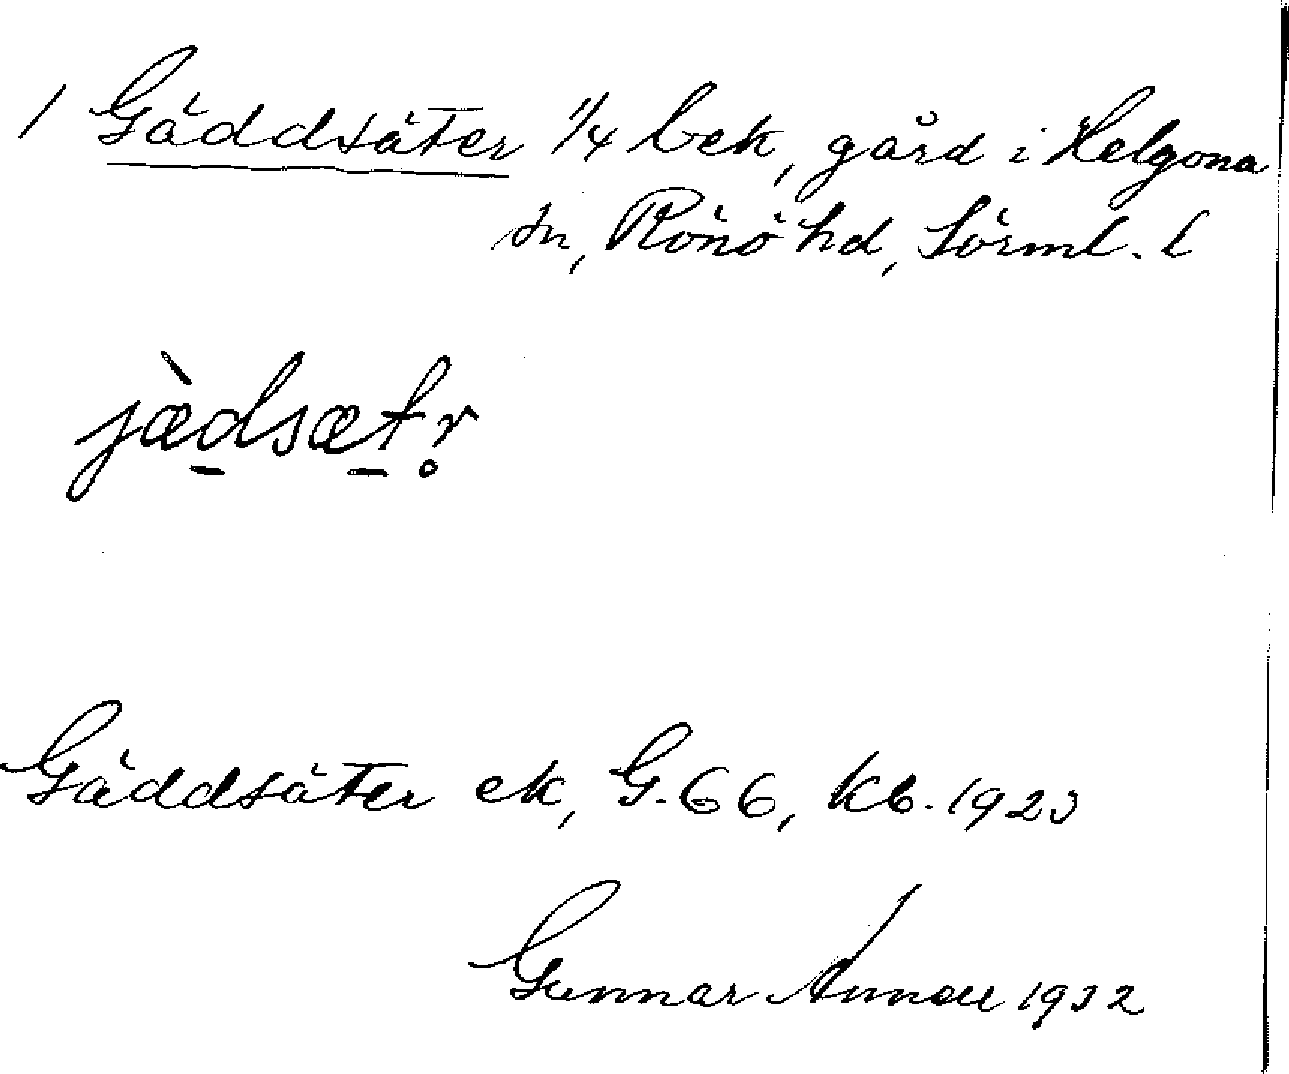 1 Gäddsäter 1/4 bek, gård i Helgona
sn, Rönö hd, Sörml. l
jæ̀d̠sæt̠r̥
Gäddsäter ek, G. 66, kb. 1923
Gunnar 1932